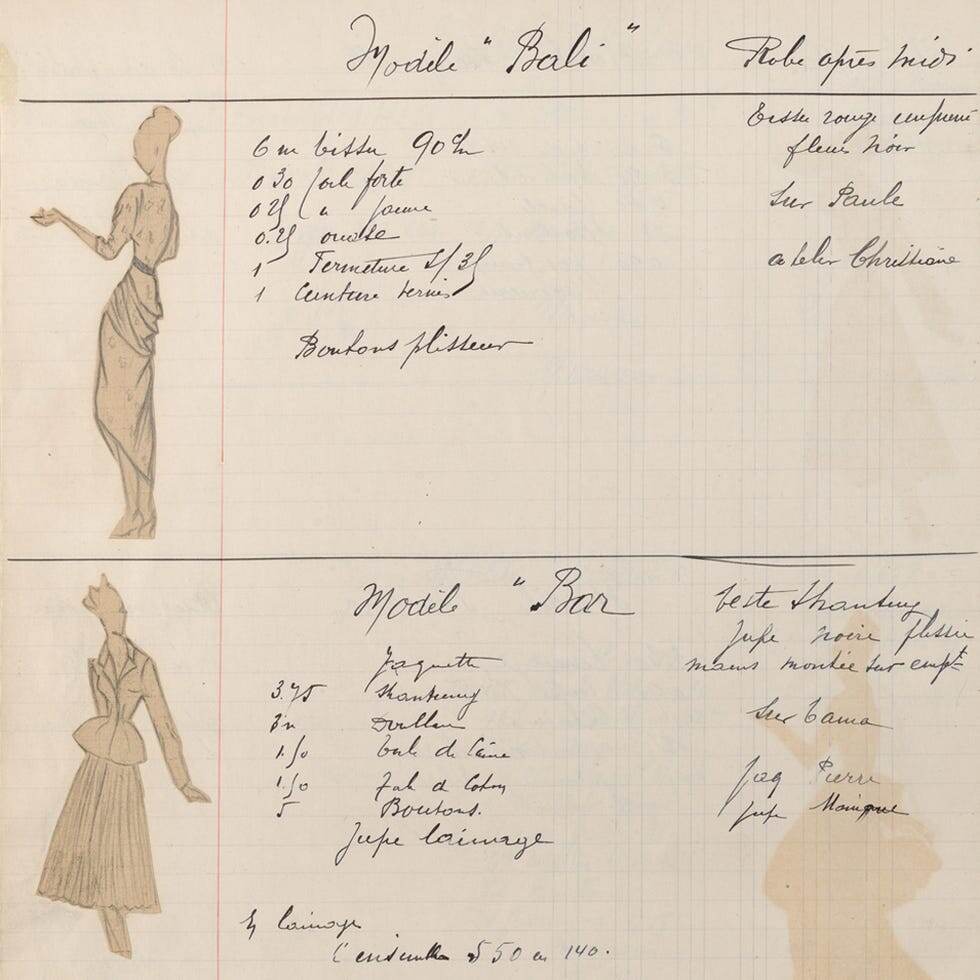 Modèle "Bali" Robe après midi
Tissu rouge imprimé
fleurs noir
6 m tissu 90 cm
0 30 toile forte
sur Paule
0 25 " jaune
0.25 ouate
atelier Christiane
1 Fermeture 35
1 Ceinture vernis
Boutons plisseur
Modèle "Bar
Veste Shantung
Jupe noire plissée
mains montée sur
Jaquette
3.75 Shantung
3m
sur Tania
1.50 toile de laine
1.50 de coton
Jaq Pierre
5 Boutons.
Jupe Monique
Jupe lainage
lainage
L'ensemble 5 50 en 140.